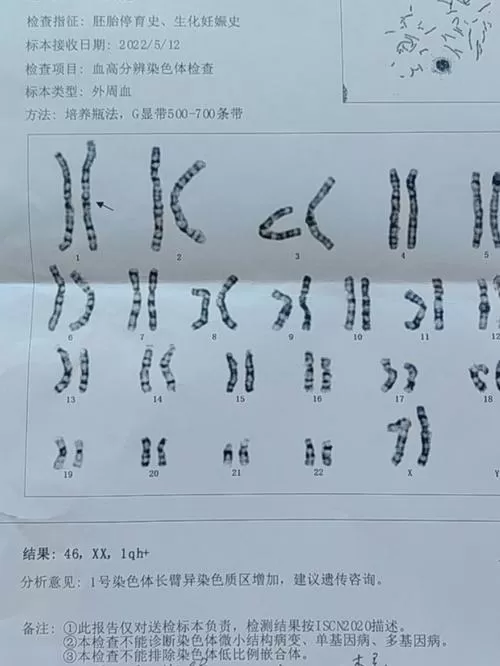 检查指征: 胚胎停育史、生化妊娠史
标本接收日期: 2022/5/12
检查项目: 血高分辨染色体检查
标本类型: 外周血
方法: 培养瓶法, G显带500-700条带
1 2 3 4 5
6 7 8 9 10 11 12
13 14 15 16 17 18
19 20 21 22 X Y
结果: 46, XX, 1qh+
分析意见: 1号染色体长臂异染色质区增加, 建议遗传咨询。
备注: ①此报告仅对送检标本负责, 检测结果按ISCN2020描述。
②本检查不能诊断染色体微小结构病变、单基因病、多基因病。
③本检查不能排除染色体低比例嵌合体。